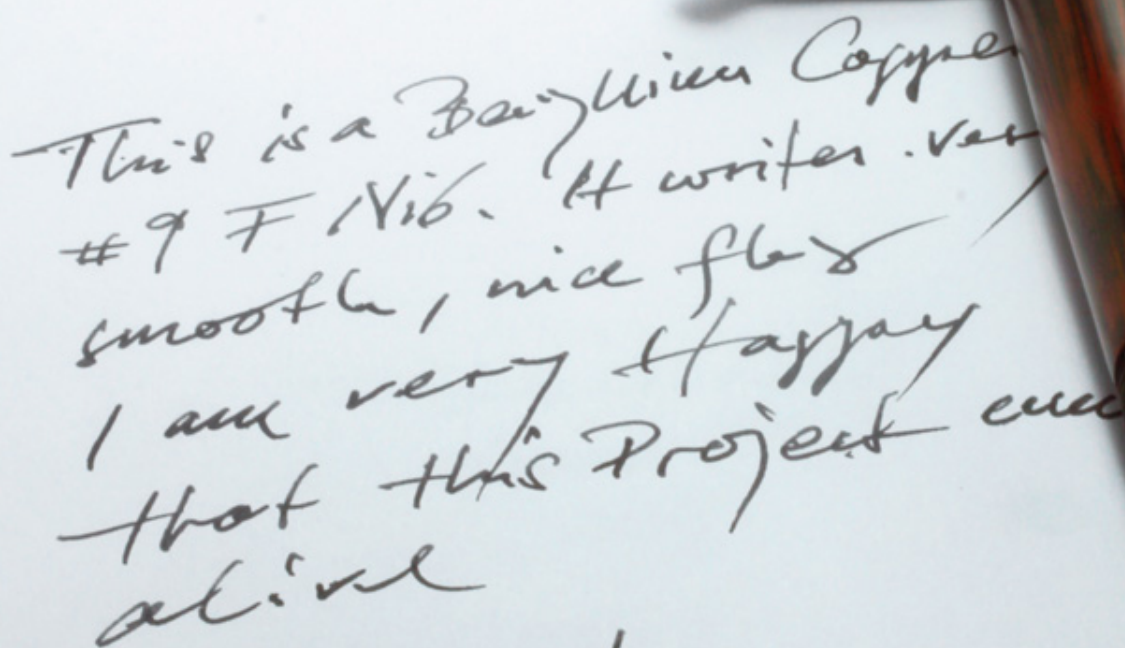 This is a Beryllium Copper
#9 F Nib. It writes very
smooth, nice flex
I am very Happy
that this Project
alive